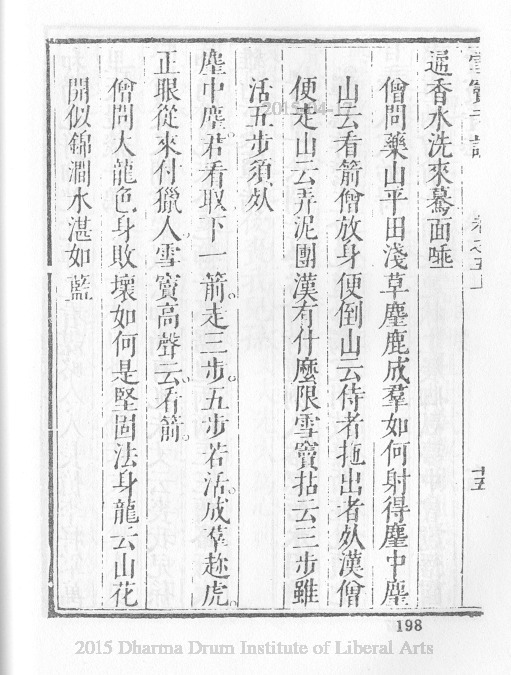 逼香水洗來驀面唾
僧問藥山平田淺草麈鹿成羣如何射得麈中麈
山云看箭僧放身便倒山云侍者拖出者死漢僧
便走山云弄泥團漢有什麼限雪竇拈云三步雖
活五步須死
麈中麈君看取下一箭走三步五步若活成羣趂虎
正眼從來付獵人雪竇高聲云看箭
僧問大龍色身敗壞如何是堅固法身龍云山花
開似錦澗水湛如藍
十五
198
2015-04-17
2015 Dharma Drum Institute of Liberal Arts